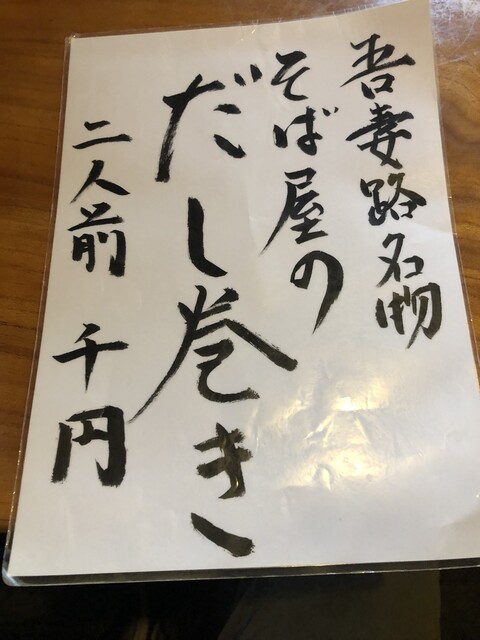 吾妻路名物
そば屋の
だし巻き
二人前 千円